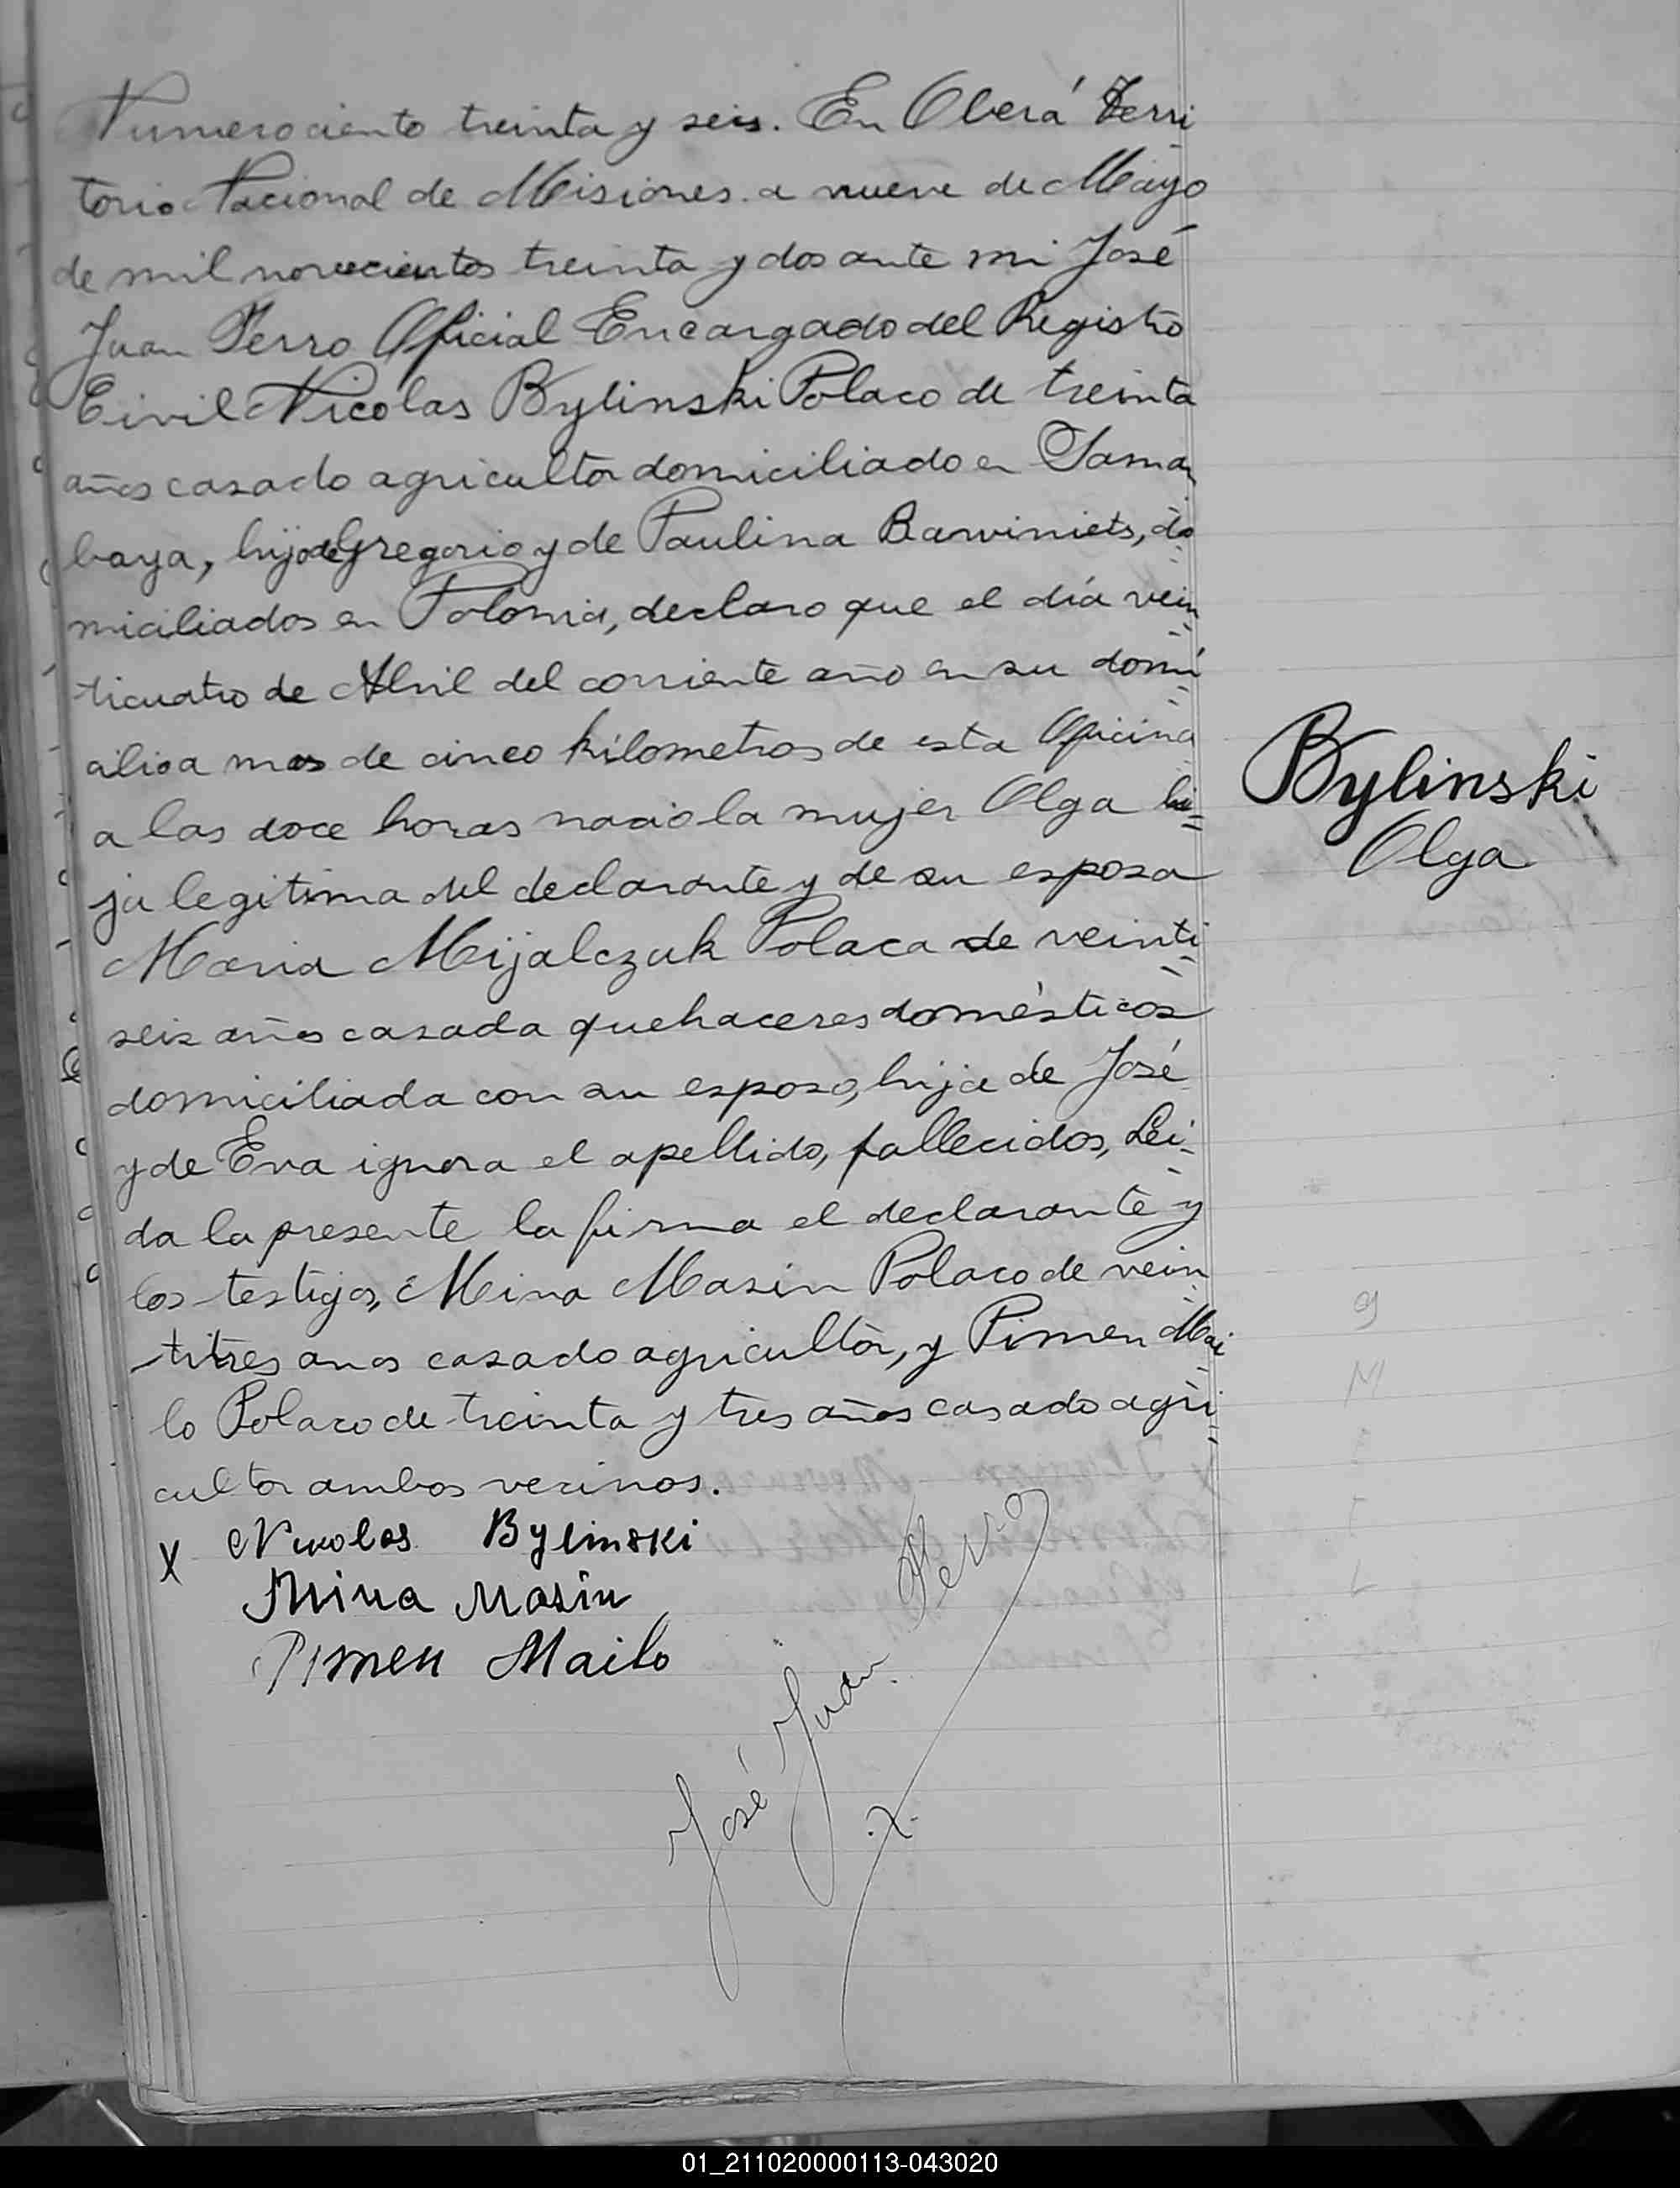 Numero ciento treinta y seis. En Oberá Terri
torio Nacional de Misiones a nueve de Mayo
de mil novecientos treinta y dos ante mi José
Juan Perro Oficial Encargado del Registro
Civil Nicolas Bylinski Polaco de treinta
años casado agricultor domiciliado en Sama
baya, hijo de Gregorio y de Paulina Barviniets, do
miciliados en Polonia, declaro que el día vein
ticuatro de Abril del corriente año en su domi
cilio a mas de cinco kilometros de esta Oficina
a las doce horas nacio la mujer Olga hi
ja legitima del declarante y de su esposa
Maria Mijalczuk Polaca de veinti
seis años casada quehaceres domésticos
domiciliada con su esposo, hija de José
y de Eva ignora el apellido, fallecidos, Lei
da la presente la firma el declarante y
los testigos, Mina Masin Polaco de vein
titres anos casado agricultor, y Pimen Mai
lo Polaco de treinta y tres años casado agri
cultor ambos vecinos.
Bylinski
Olga
X Nikolas Bylinski
Mina Masin
Pimen Mailo
José Juan Perro
01_211020000113-043020